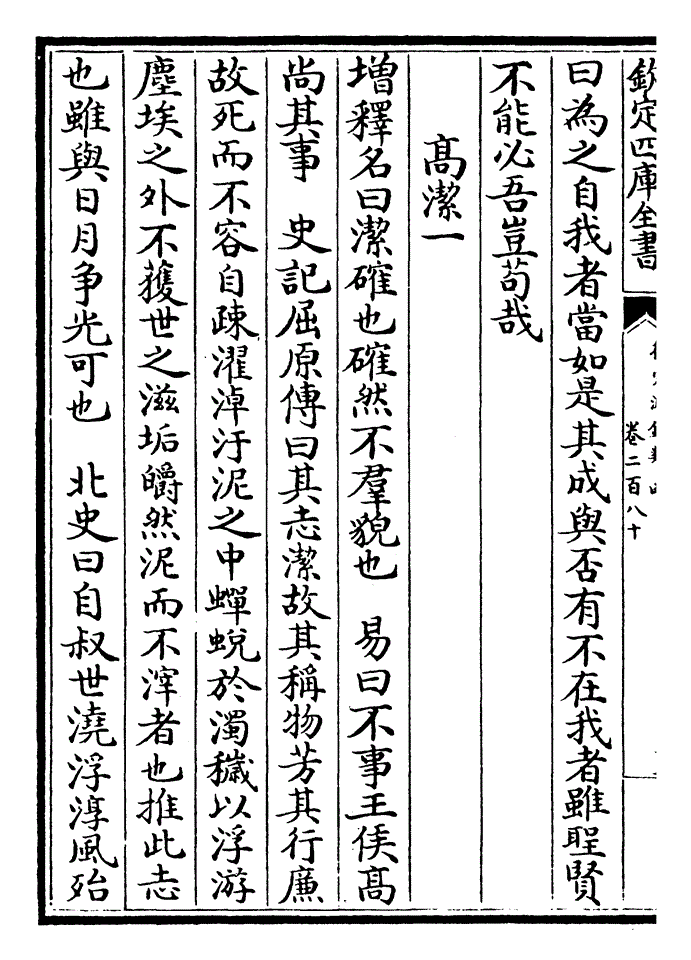 欽定四庫全書
卷二百八十
曰為之自我者當如是其成與否有不在我者雖聖賢
不能必吾豈苟哉
高潔一
增釋名曰潔確也確然不羣貌也　易曰不事王侯高
尚其事　史記屈原傳曰其志潔故其稱物芳其行廉
故死而不容自疎濯淖汙泥之中蟬蛻於濁穢以浮游
塵埃之外不獲世之滋垢皭然泥而不滓者也推此志
也雖與日月争光可也　北史曰自叔世澆浮淳風殆